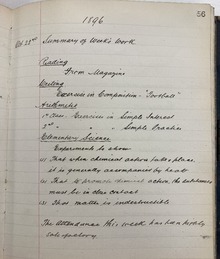 56
1896
Oct 23rd Summary of Week's Work
Reading
From Magazine
Writing
Exercise in Composition - "Football"
Arithmetic
1st Class. Exercises in Simple Interest
2nd " " - Simple Practice
Elementary Science
Experiments to show
(1) That when chemical action takes place,
it is generally accompanied by heat
(2) That to promote chemical action, the substances
must be in close contact
(3) That matter is indestructible
The attendance this week has been